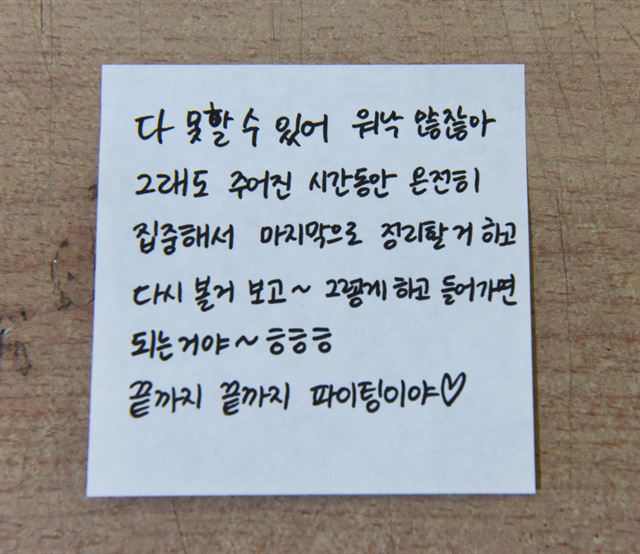 다 못할 수 있어 워낙 많잖아
그래도 주어진 시간동안 온전히
집중해서 마지막으로 정리할거 하고
다시 볼거 보고~ 그렇게 하고 들어가면
되는거야~ ㅎㅎㅎ
끝까지 끝까지 파이팅이야♡